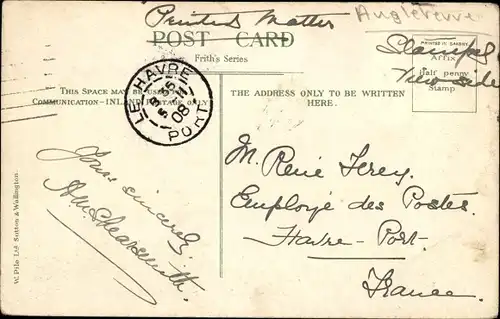 Printed Matter
Angleterre
POST CARD
Frith's Series
PRINTED IN SAXONY
Affix
Half penny
Stamp
Stamped
Viewside
THIS SPACE MAY BE USED
COMMUNICATION—INLAND POSTAGE ONLY
THE ADDRESS ONLY TO BE WRITTEN
HERE.
LE HAVRE
PORT
08
M. René Ferey.
Employé des Postes.
Havre-Port.
France.
Yours sincerely,
W. Pile Ltd Sutton & Wallington.